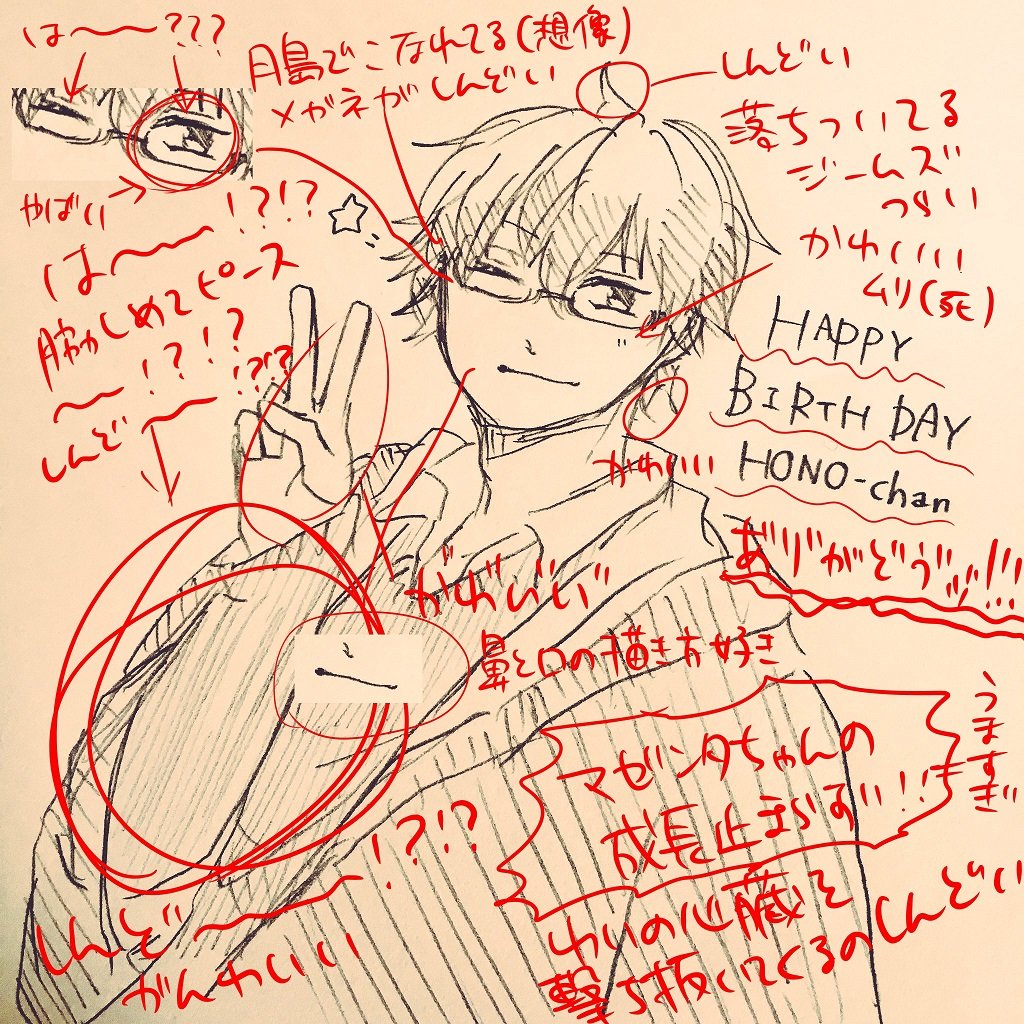 は〜〜???
月島でこなれてる(想像)
メガネがしんどい
しんどい
落ちついてる
ジームズ
つらい
やばい
は〜〜!?!?
脇しめてピース
〜!?!?
しんど〜!?!?
かわいい
ムリ(死)
HAPPY
BIRTH DAY
HONO-chan
かわいい
あ゛り゛がどう゛ッ!!!
がわ゛い゛い゛
鼻と口の描き方好き
マゼンタちゃんの
成長止まらず!!
うますぎ
しんど〜〜!?!?
がんわいい
わいの心臓を
撃ち抜いてくるのしんどい